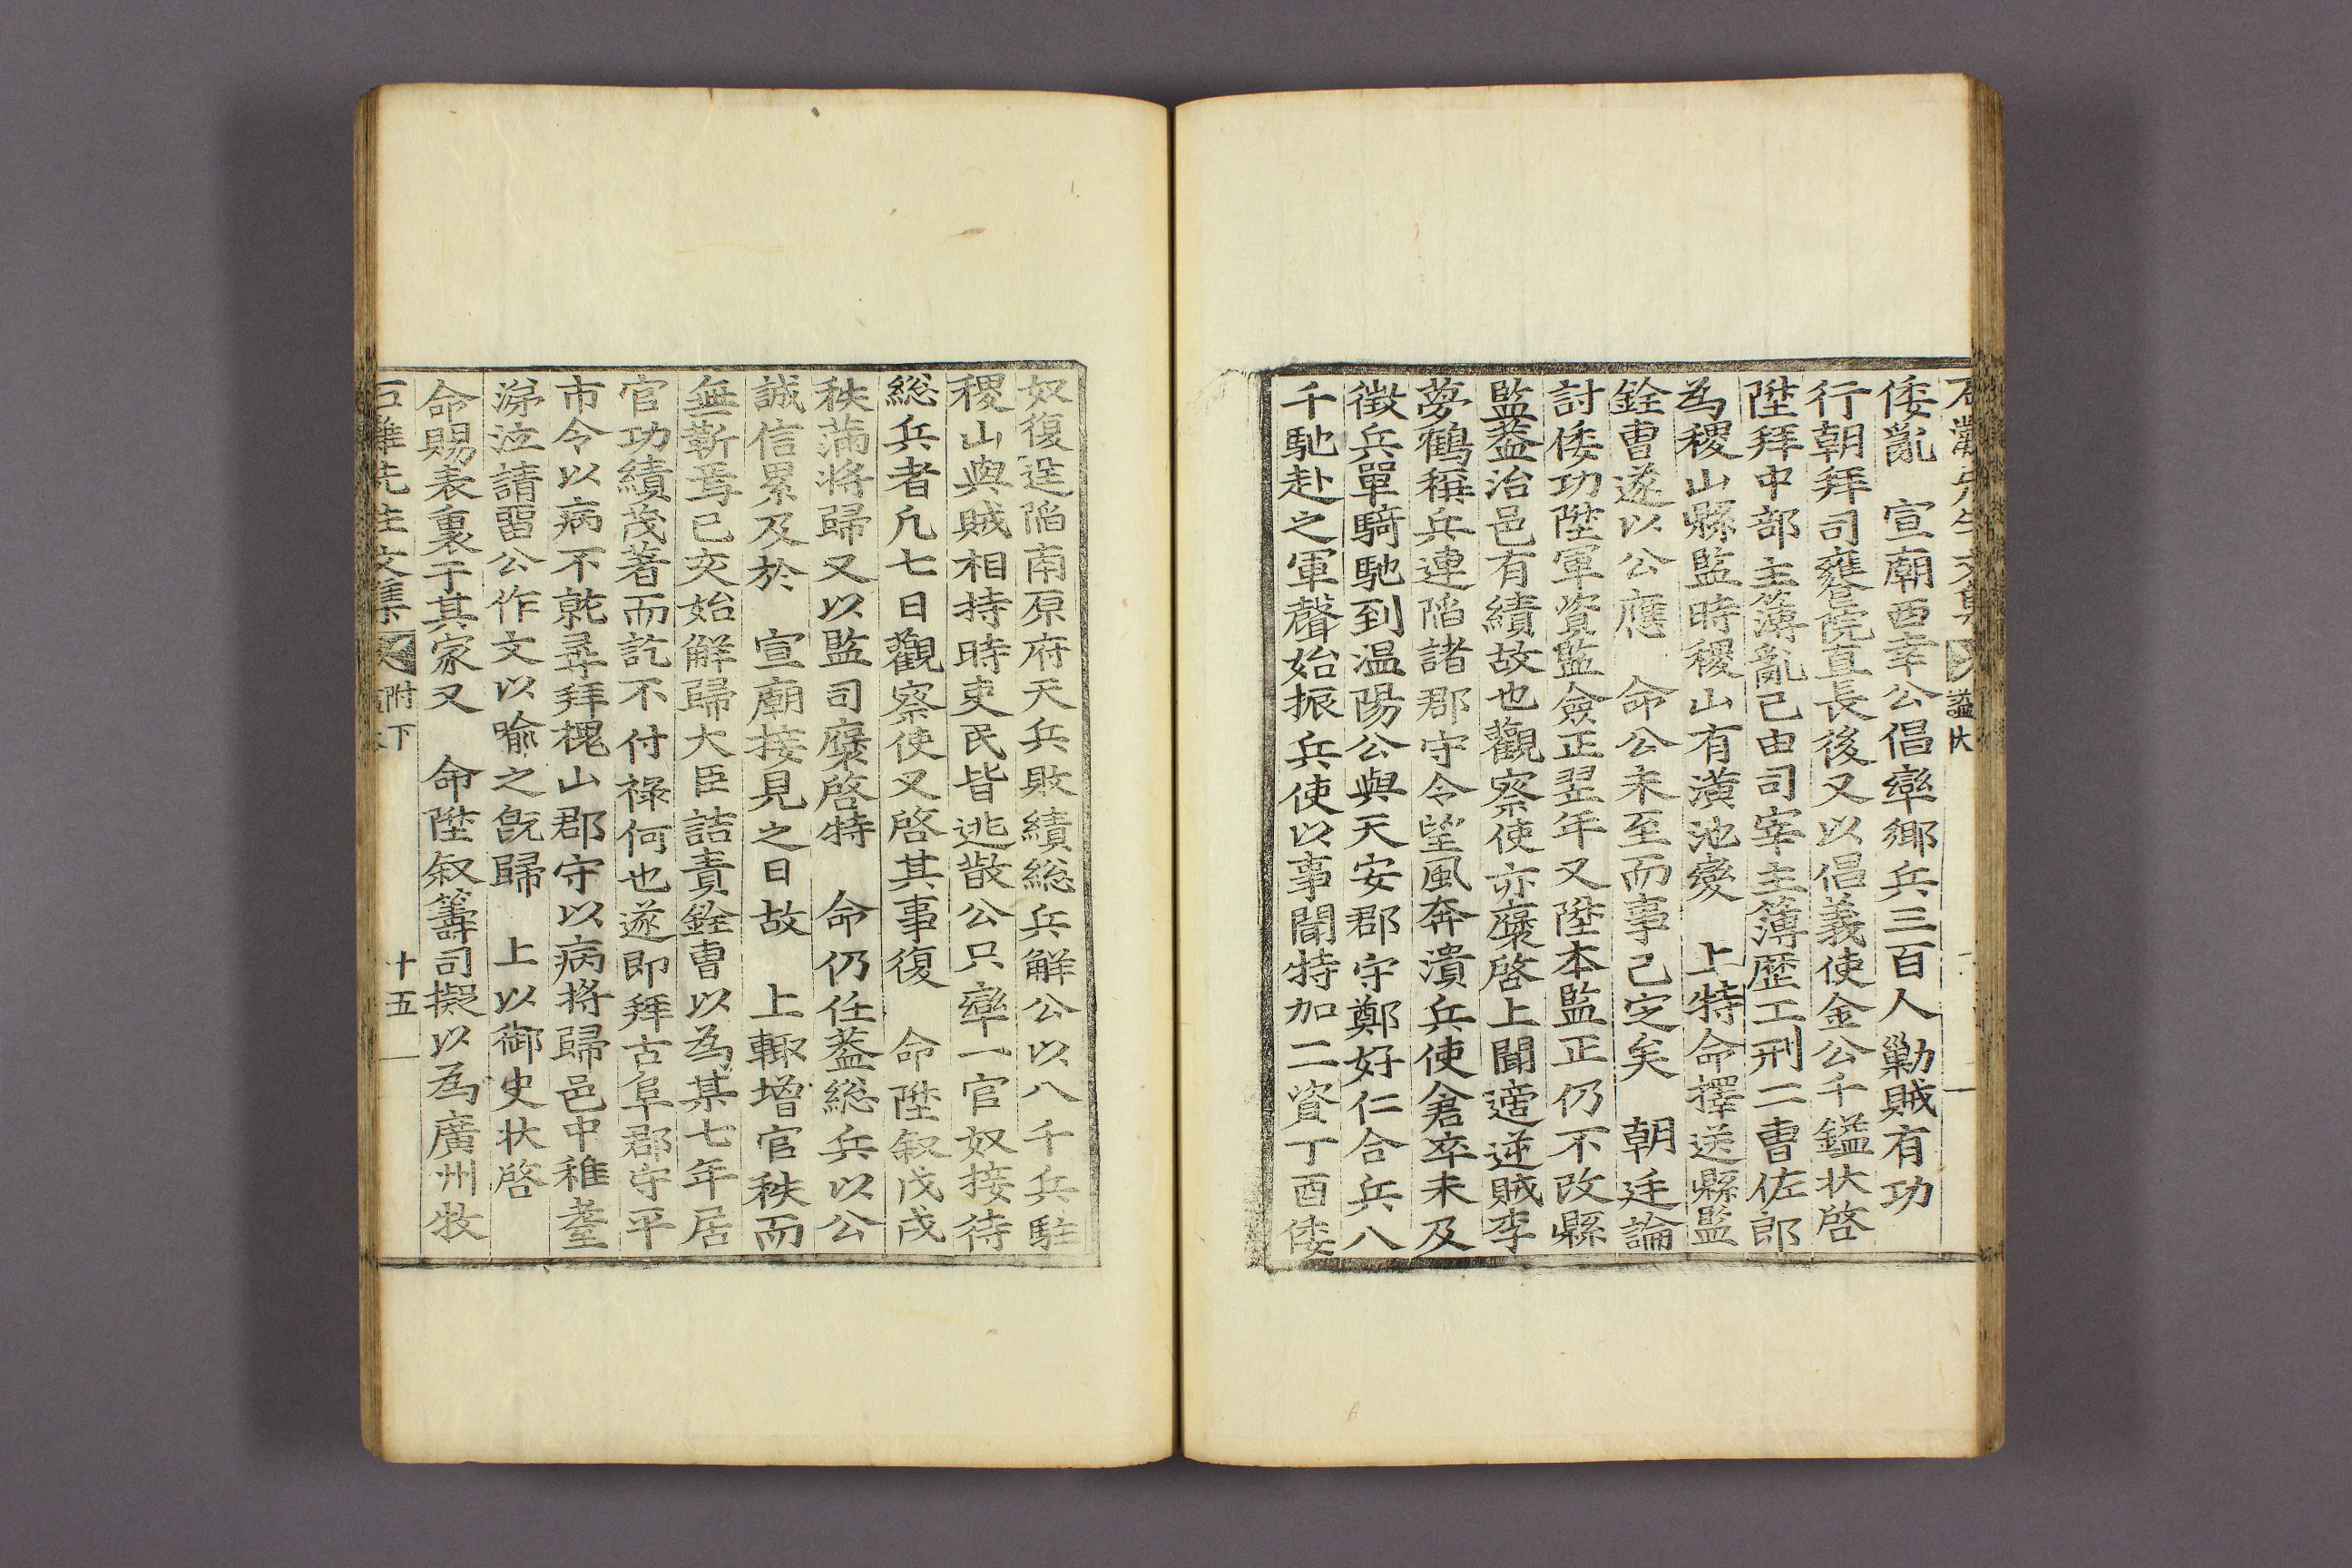 倭亂　宣廟西幸公倡率鄉兵三百人勦賊有功
行朝拜司饔院直長後又以倡義使金公千鎰狀啓
陞拜中部主簿亂已由司宰主簿歷工刑二曹佐郎
為稷山縣監時稷山有潢池變　上特命擇送縣監
銓曹遂以公應　命公未至而事已定矣　朝廷論
討倭功陞軍資監僉正翌年又陞本監正仍不改縣
監盖治邑有績故也觀察使亦褒啓上聞適逆賊李
夢鶴稱兵連陷諸郡守令望風奔潰兵使倉卒未及
徵兵單騎馳到温陽公與天安郡守鄭好仁合兵八
千馳赴之軍聲始振兵使以事聞特加二資丁酉倭
奴復逞陷南原府天兵敗績総兵解公以八千兵駐
稷山與賊相持時吏民皆逃散公只率一官奴接待
総兵者凡七日觀察使又啓其事復　命陞叙戊戌
秩滿將歸又以監司褒啓特　命仍任盖総兵以公
誠信累及於　宣廟接見之日故　上輙增官秩而
無靳焉已亥始解歸大臣詰責銓曹以為某七年居
官功績茂著而訖不付祿何也遂即拜古阜郡守平
市令以病不就尋拜槐山郡守以病將歸邑中稚耋
涕泣請畱公作文以喻之旣歸　上以御史狀啓
命賜表裏于其家又　命陞叙籌司擬以為廣州牧
石灘先生文集　附下　十五